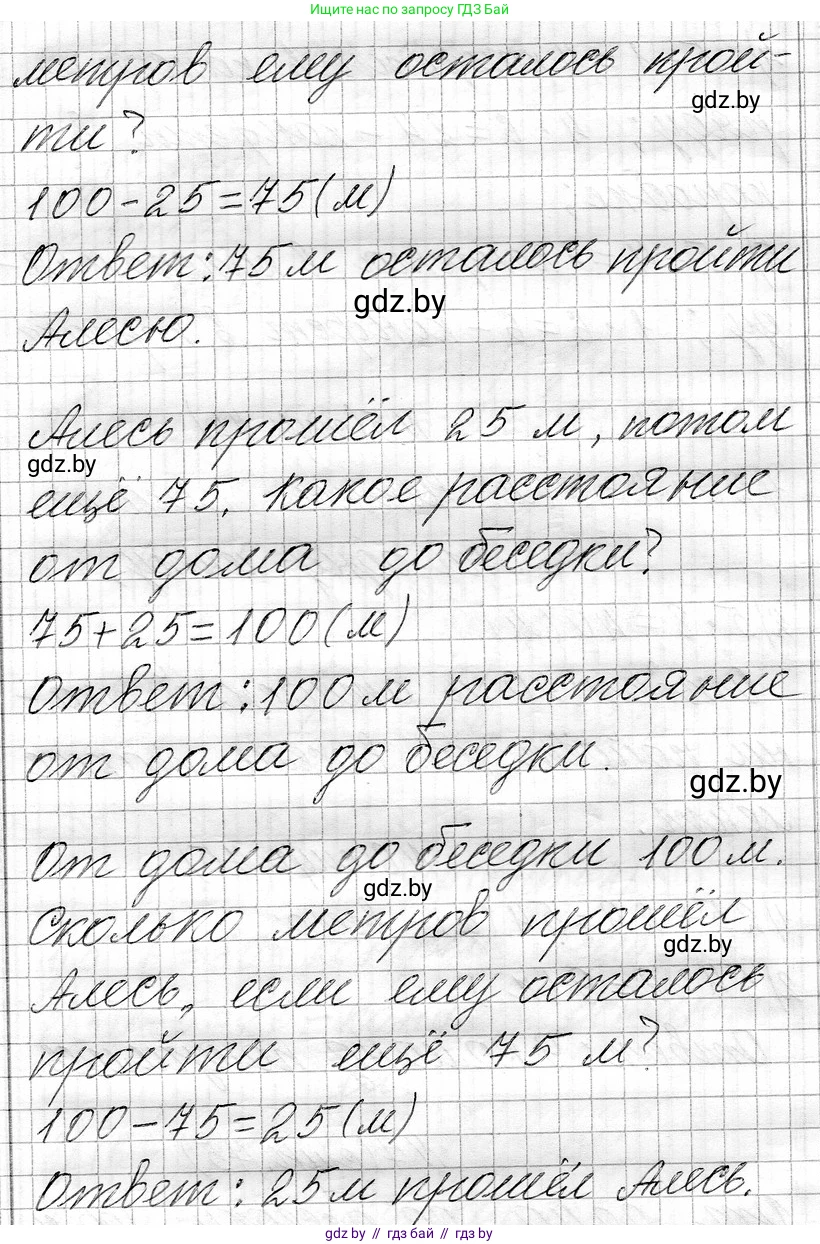 Ищите нас по запросу ГДЗ Бай
метров ему осталось прой-
gdz.by
ти?
100-25=75(м)
Ответ: 75 м осталось пройти
gdz.by
Алесю.
Алесь прошёл 25 м, потом
gdz.by
ещё 75. Какое расстояние
от дома до беседки?
75+25=100(м)
Ответ: 100 м расстояние
от дома до беседки.
gdz.by
От дома до беседки 100 м.
gdz.by
Сколько метров прошёл
gdz.by
Алесь, если ему осталось
пройти ещё 75 м?
100-75=25(м)
Ответ: 25 м прошёл Алесь.
gdz.by // гдз бай // гдз by